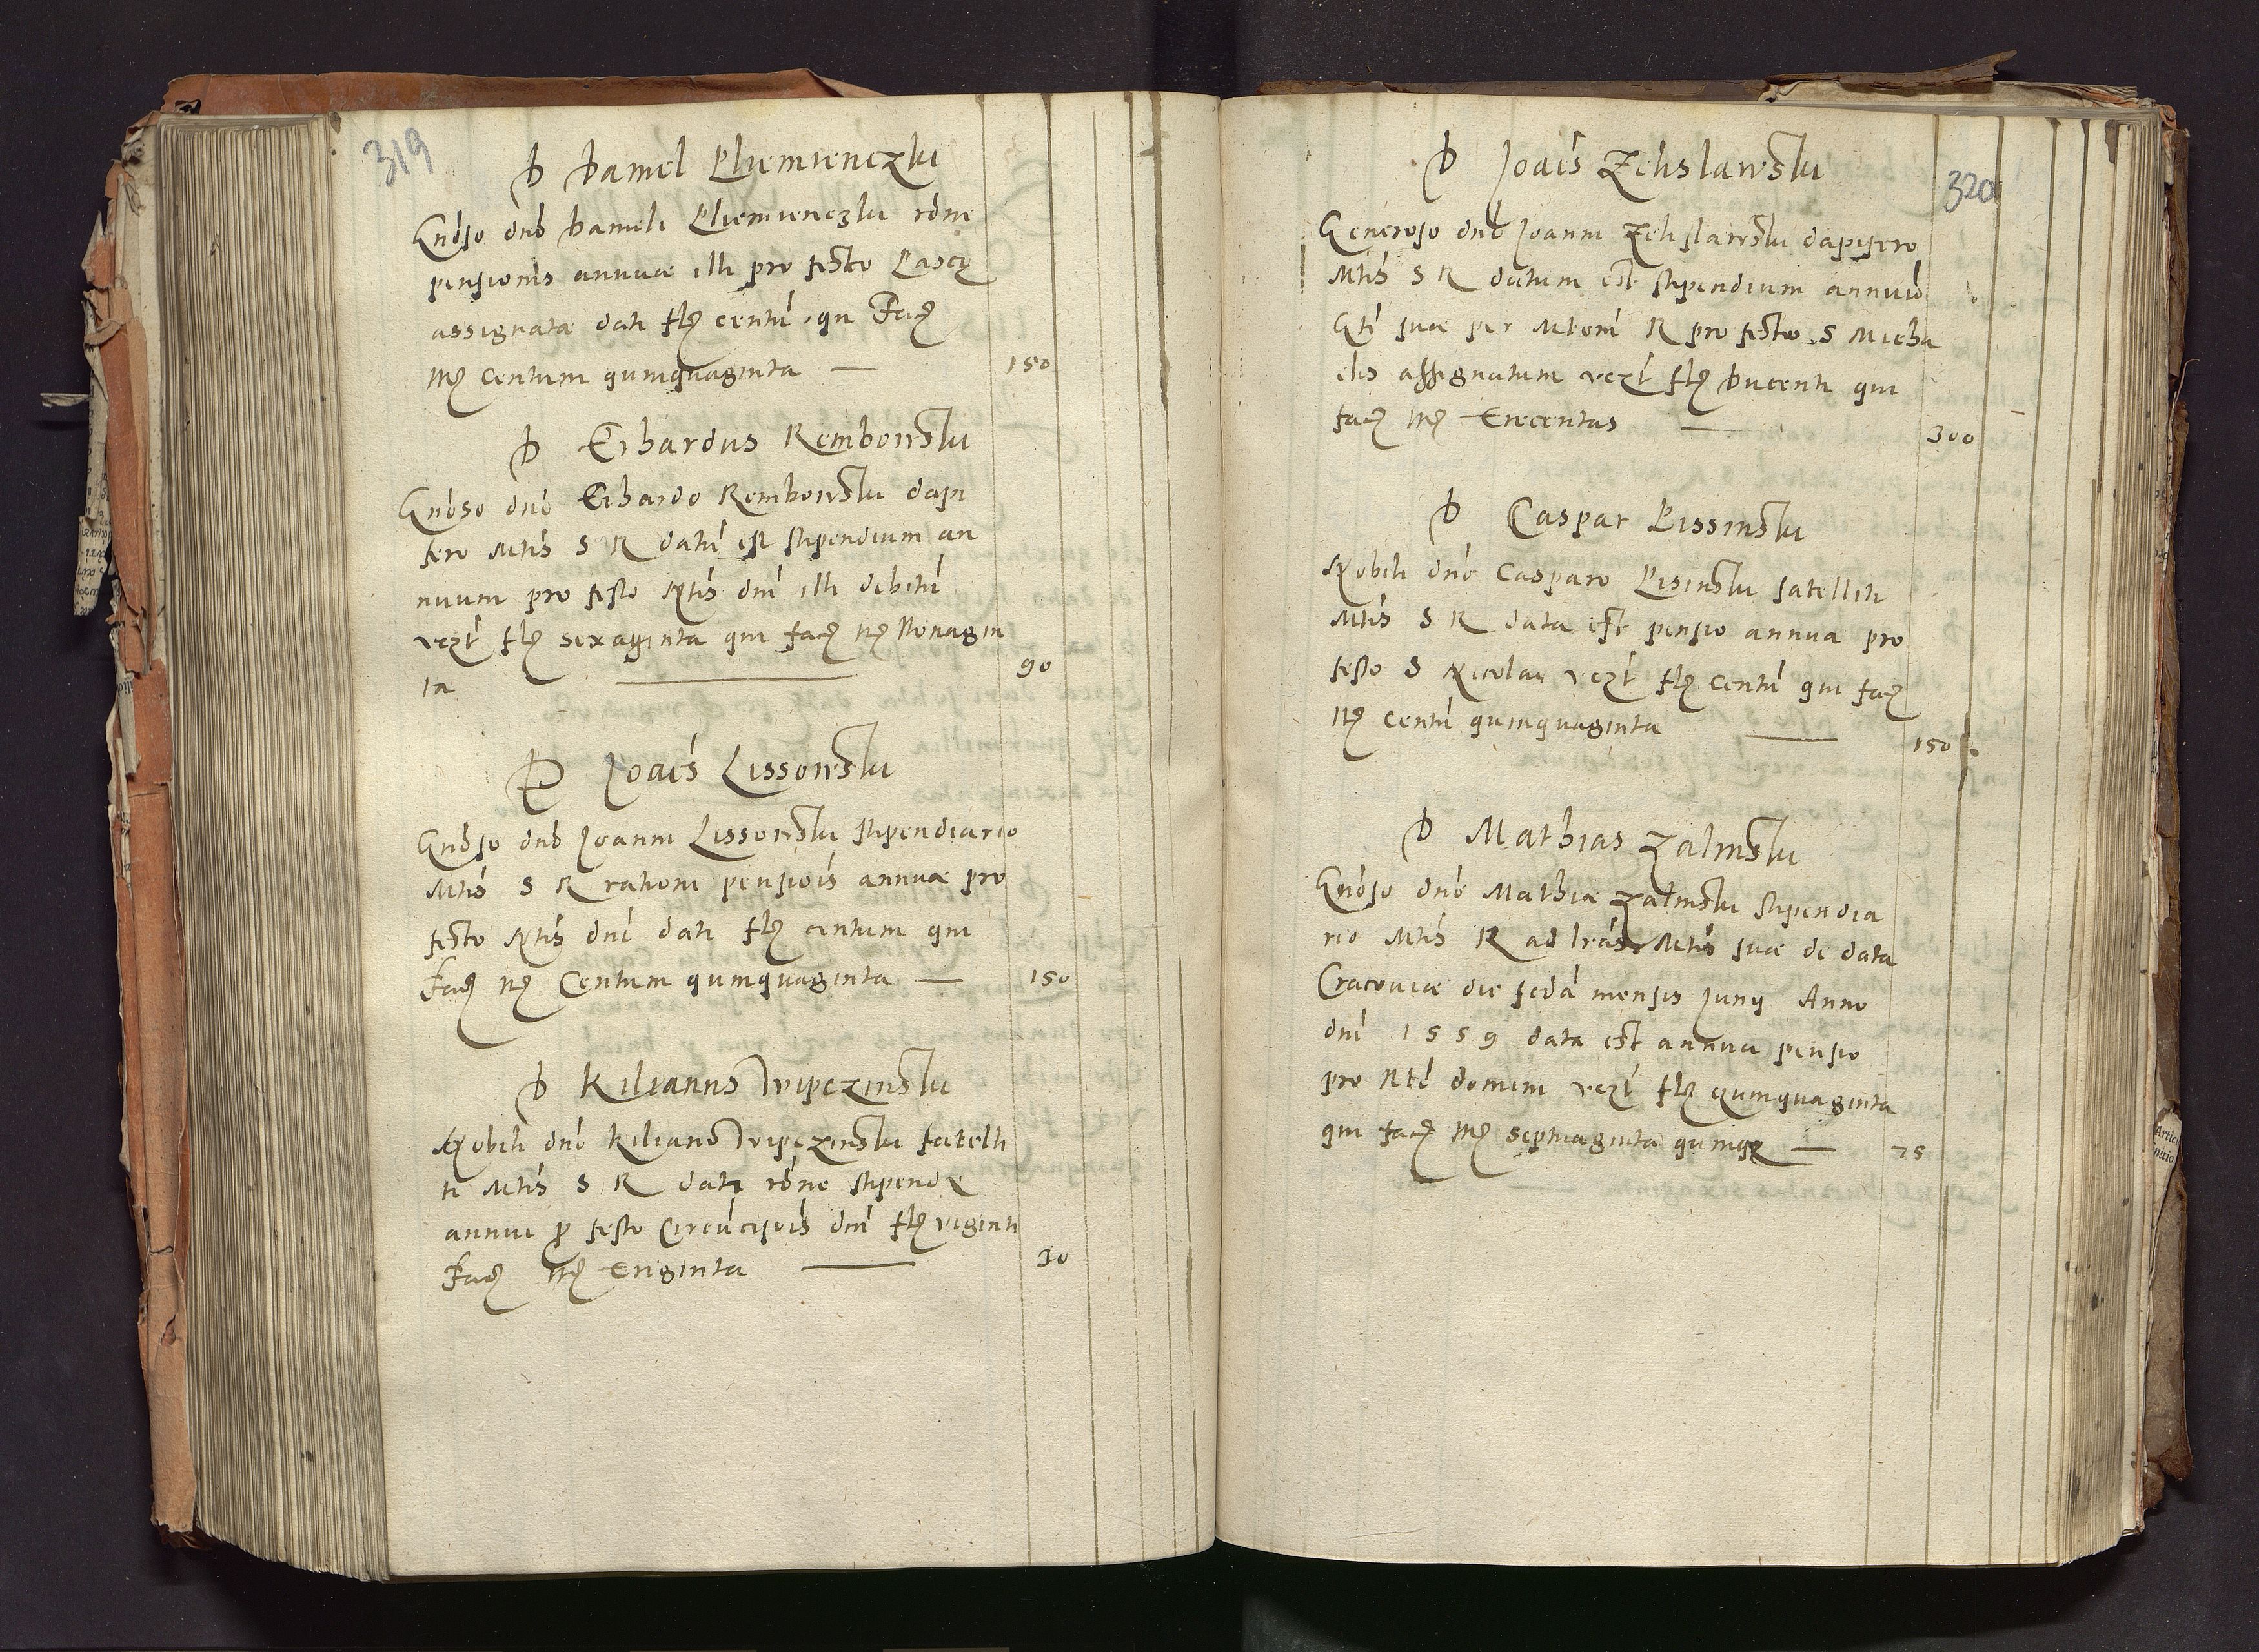 319
D Daniel Pliemienczki
Gnoso dno Danieli Pliemienczki rone
pensionis annuae illi pro festo Pascę
assignatae dati flo centu qui Faci
mr centum quinquaginta — 150
D Erhardus Rembowski
Gnoso dno Erhardo Rembowski dapi
fero Mtis S R datu est stipendium an
nuum pro festo Ntis dni illi debitu
vezt fl sexaginta qui faci mr Nonagin
ta — 90
D Joais Lissowski
Gnoso dno Joanni Lissowski stipendiario
Mtis S R rationi pensiois annuae pro
festo Ntis dni dati fl centum qui
faci mr Centum quinquaginta — 150
D Kilianus Wipczinski
Nobili dno Kiliano Wipczinski satelli
ti Mtis S R dati rone stipendę
annui p festo Circucisois dni fl viginti
faci mr triginta — 30
320
D Joais Zelislawski
Generoso dno Joanni Zelislawski dapifero
Mtis S R datum est stipendium annuu
Gti suae per Mtem R pro festo S Micha
elis assignatum vezt fl Ducenti qui
faci mr trecentas — 300
D Caspar Pissinski
Nobili dno Casparo Pisinski satelliti
Mtis S R data est pensio annua pro
festo S Nicolai vezt fl centu qui faci
mr centu quinquaginta — 150
D Mathias Zalinski
Gnoso dno Mathiae Zalinski stipendia
rio Mtis R ad lras Mtis suae de data
Cracoviae die scda mensis Junij Anno
dni 1559 data est annua pensio
pro Nte domini vezt fl quinquaginta
qui faci mr septuaginta quinqz — 75